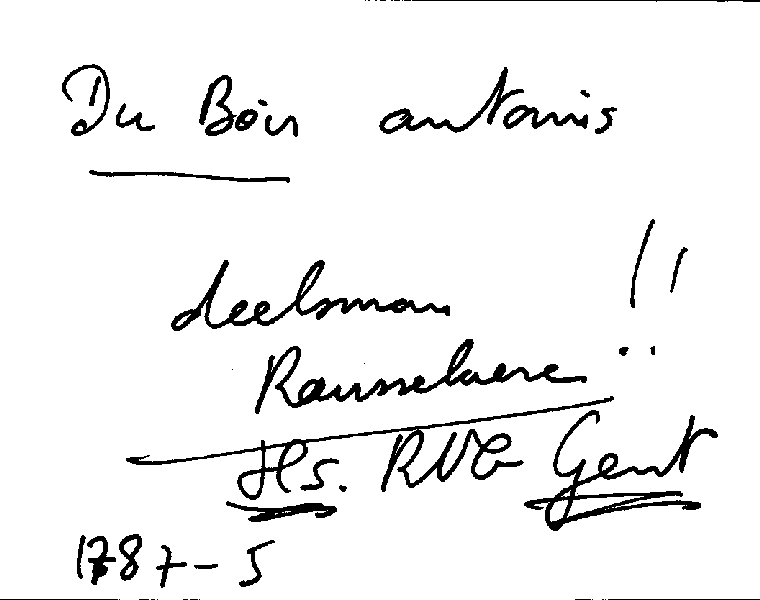 Du Bois antonis
deelsman !!
Rousselaere
Hs. RVG Gent
1787-5